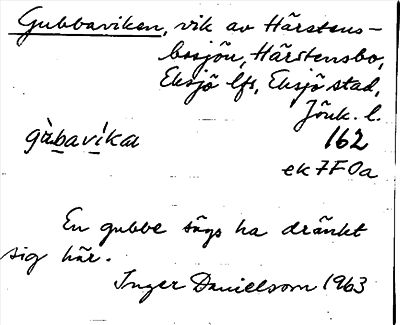 Gubbaviken, vik av Härstens-
bosjön, Härstensbo,
Eksjö lfs, Eksjö stad,
Jönk. l.
gùbavíka 162
ek 7F0a
En gubbe sägs ha dränkt
sig här.
Inger Danielsson 1963